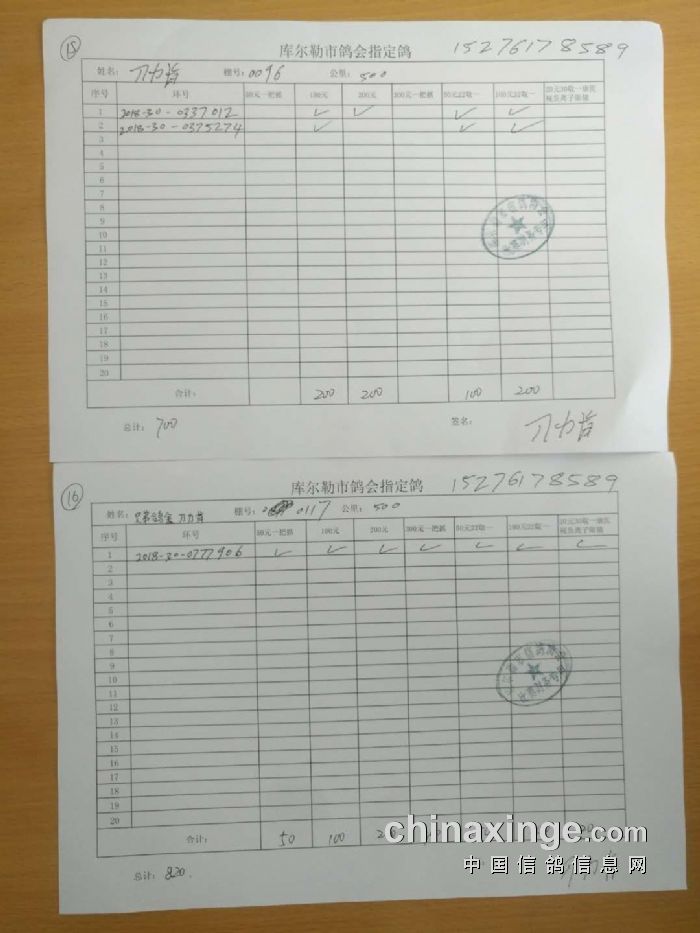 15 库尔勒市鸽会指定鸽 15276178589
姓名: 刀力肯 棚号: 0096 公里: 500
序号 环号 50元一把抓 100元 200元 300元一把抓 50元22取一 100元22取一
1 2018-30-0337012 ✓ ✓ ✓ ✓
2 2018-30-0375274 ✓ ✓ ✓
3
4
5
6
7
8
9
10
11
12
13
14
15
16
17
18
19
20
合计: 200 200 100 200
总计: 700 签名: 刀力肯
16 库尔勒市鸽会指定鸽 15276178589
姓名: 兄弟鸽舍 刀力肯 棚号: 0117 公里: 500
序号 环号 50元一把抓 100元 200元 300元一把抓 50元22取一 100元22取一
1 2018-30-0777906 ✓ ✓ ✓ ✓ ✓ ✓ ✓
2
3
4
5
6
7
8
9
10
11
12
13
14
15
16
17
18
19
20
合计: 50 100
总计: 820
chinaxinge.com
中国信鸽信息网